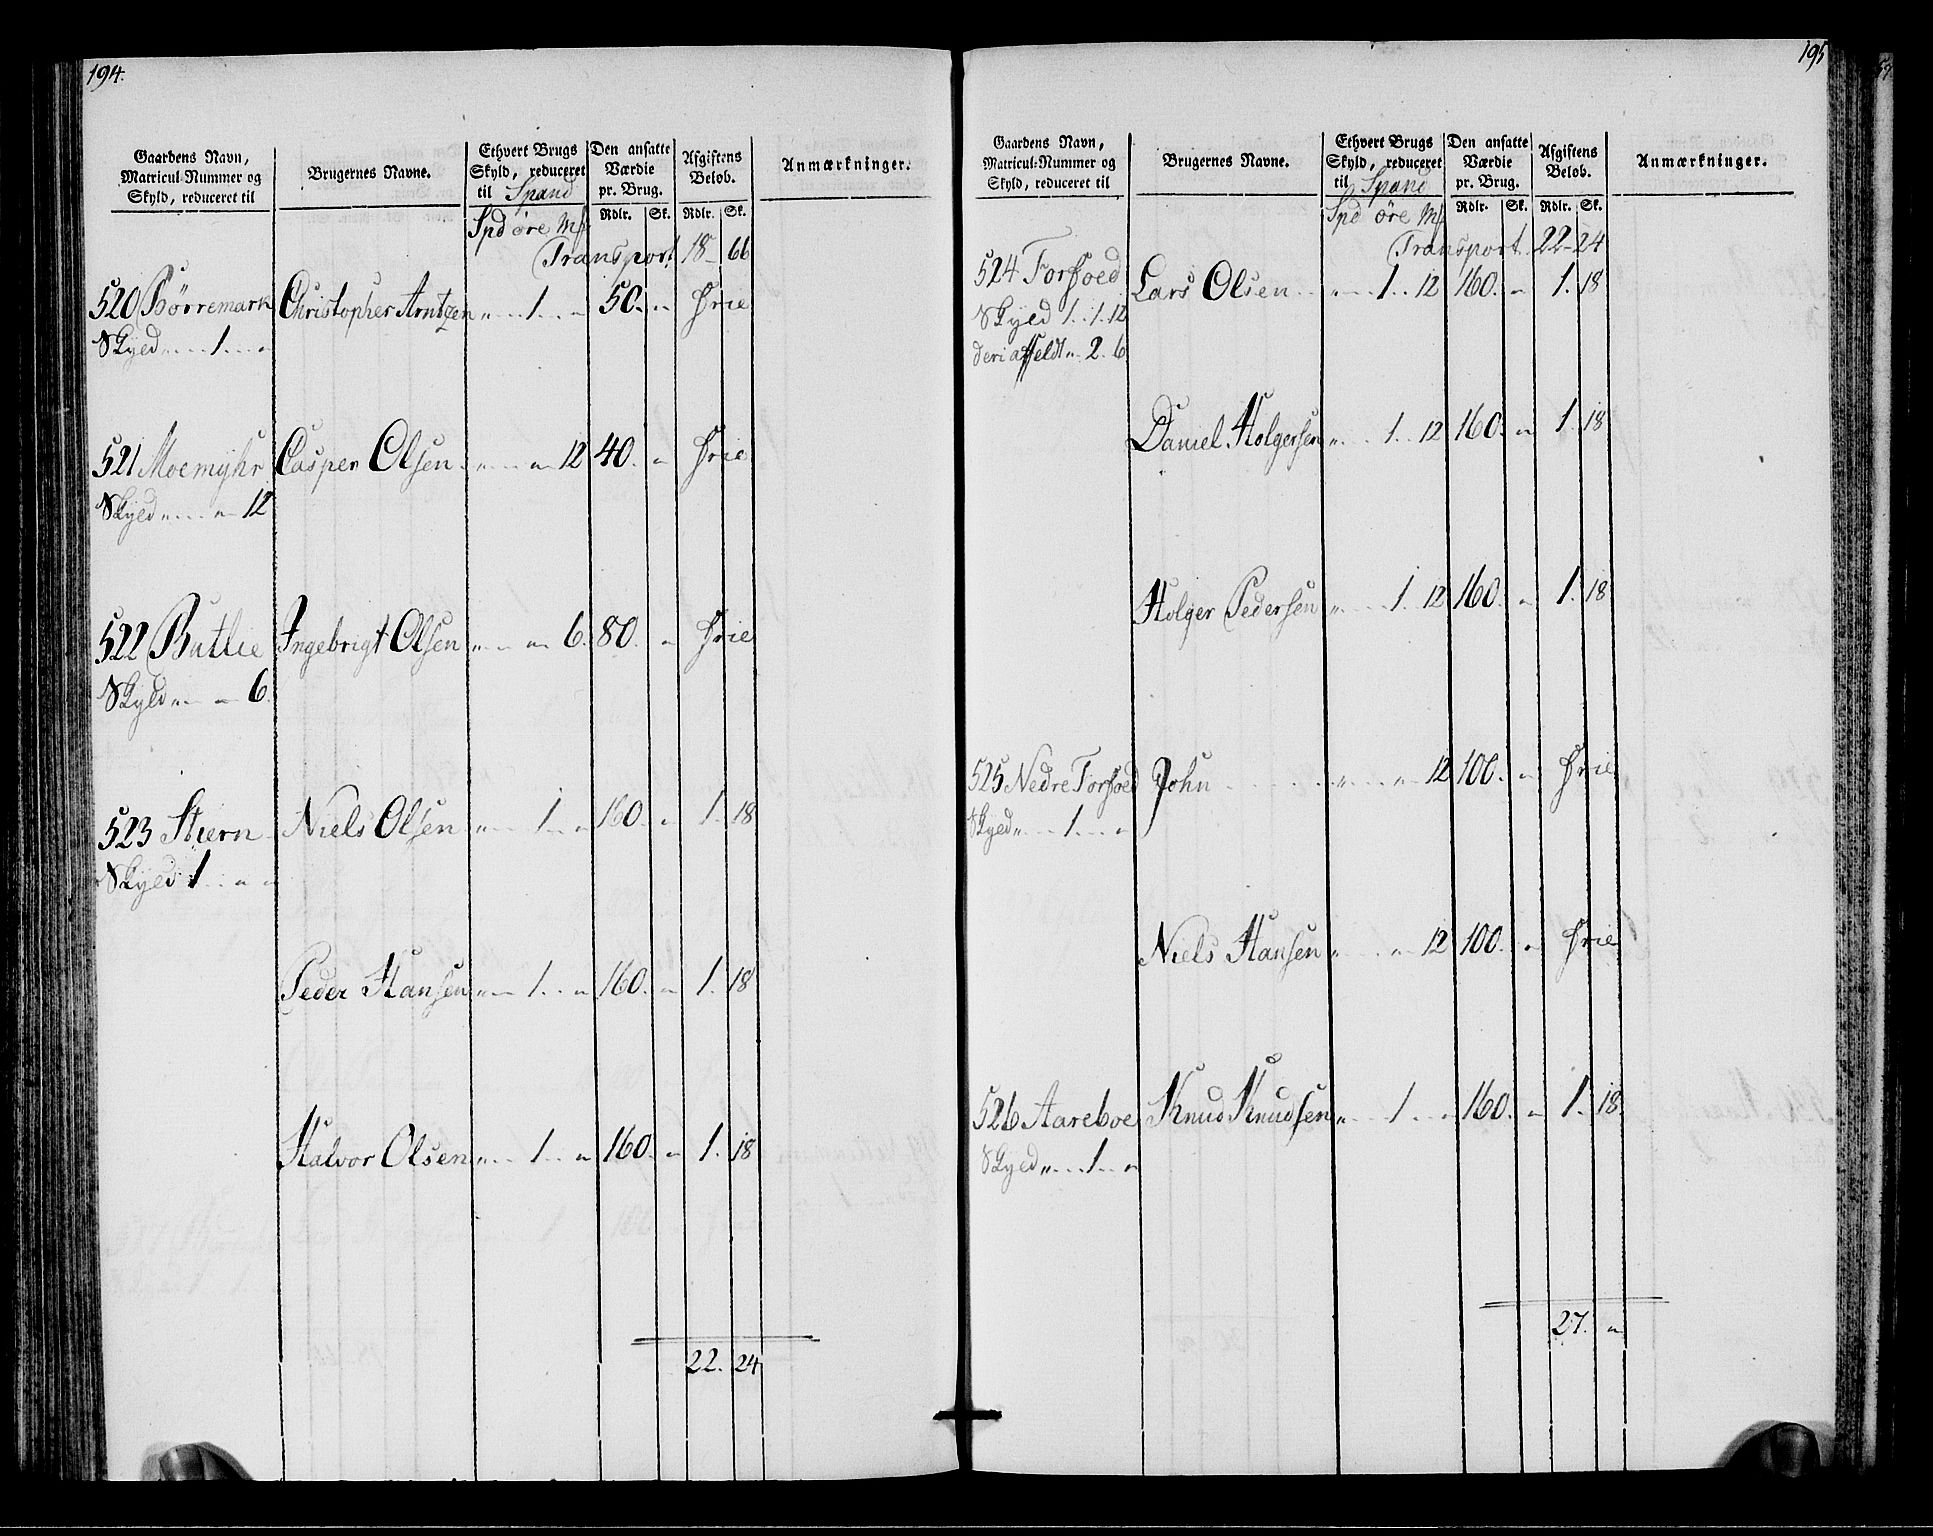 194.
Gaardens Navn, Matricul-Nummer og Skyld, reduceret til
Brugernes Navne.
Ethvert Brugs Skyld, reduceret til Spand
Den ansatte Værdie pr. Brug.
Afgiftens Beløb.
Anmærkninger.
Rdlr. Sk. Rdlr. Sk.
Spd öre Mk
Transport 18 - 66
520 Börremark Christopher Arntzen " 1 " 50. " Frie
Skyld " 1 "
521 Moemyhr Casper Olsen " " 12 40. " Frie
Skyld " " 12
522 Butlie Ingebrigt Olsen " " 6. 80. " Frie
Skyld " " 6.
523 Stiern Niels Olsen " 1 " 160. " 1. 18
Skyld 1 " "
Peder Hansen " 1 " 160. " 1. 18
Halvor Olsen " 1 " 160. " 1. 18
22. 24
195
Gaardens Navn, Matricul-Nummer og Skyld, reduceret til
Brugernes Navne.
Ethvert Brugs Skyld, reduceret til Spand
Den ansatte Værdie pr. Brug.
Afgiftens Beløb.
Anmærkninger.
Rdlr. Sk. Rdlr. Sk.
Spd öre Mk
Transport 22 - 24
524 Forfoed Lars Olsen " 1 12 160. " 1. 18
Skyld 1. 1. 12
deri affeldt " 2. 6
Daniel Holgersen " 1 12 160. " 1. 18
Holger Pedersen " 1. 12 160. " 1. 18
525 Nedre Forfoed John " " 12 100. " Frie
Skyld " 1 "
Niels Hansen " " 12 100. " Frie
526 Aareboe Knud Knudsen " 1 " 160. " 1. 18
Skyld " 1 "
27. "